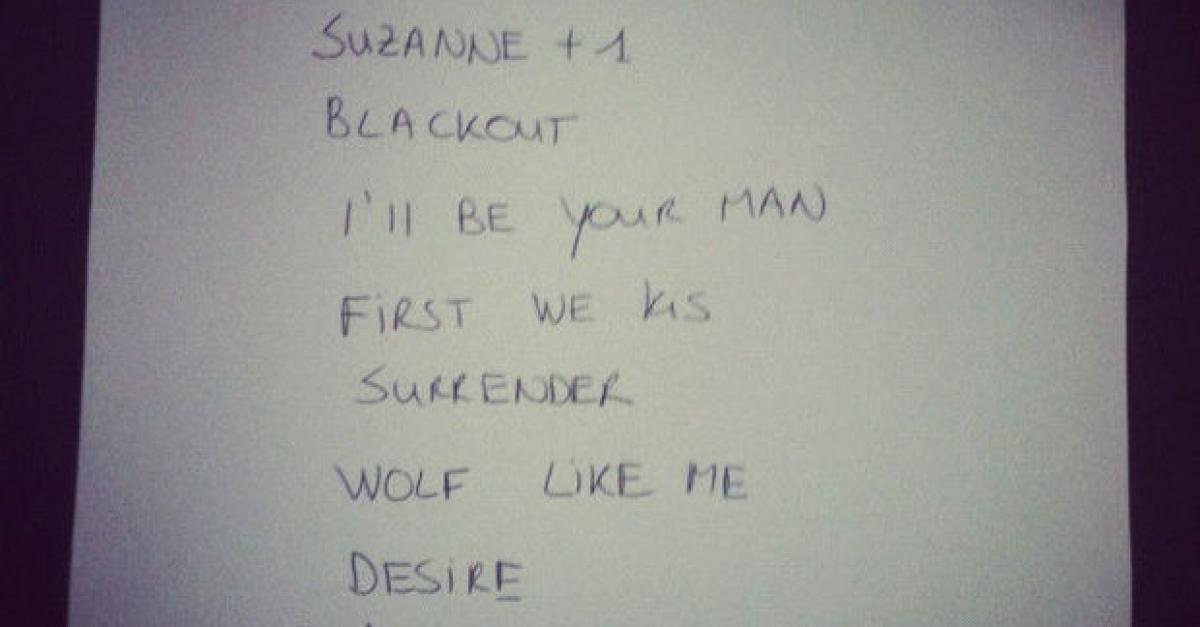 SUZANNE + 1
BLACKOUT
I'll BE YOUR MAN
FiRST WE KiS
SURRENDER
WOLF LiKE ME
DESiRE